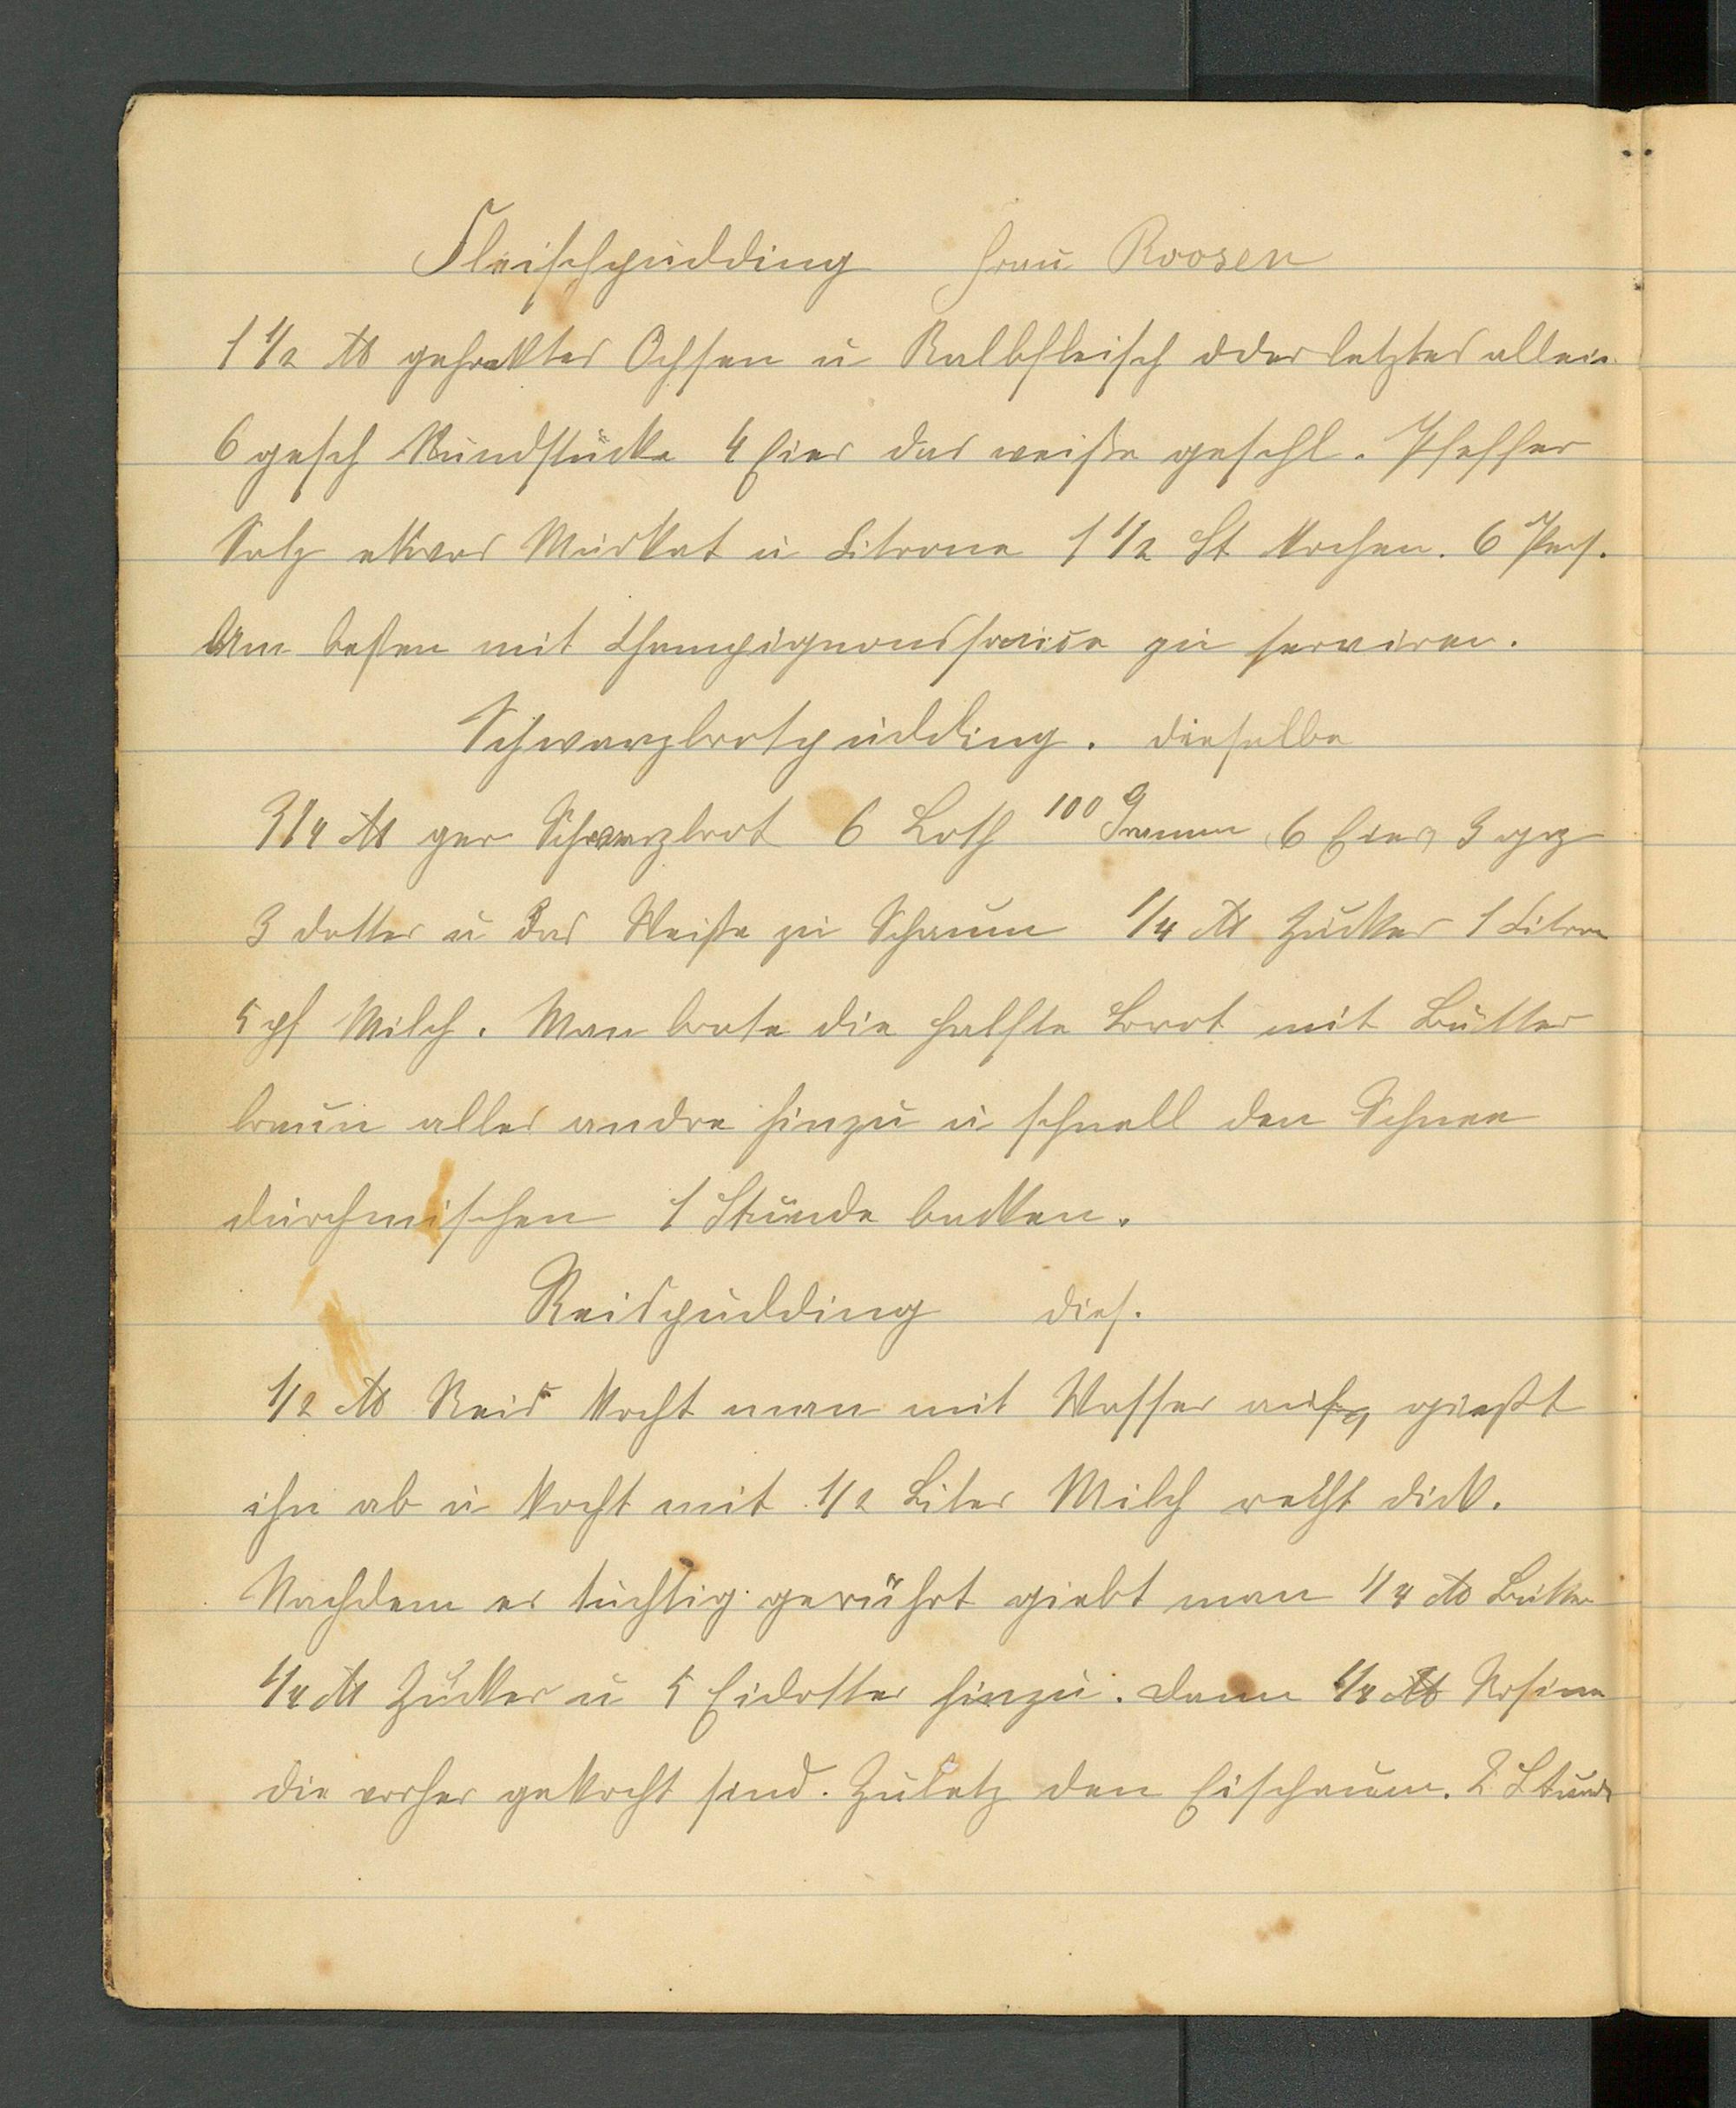 Fleischpudding Frau Roosen
1 1/2 ℔ gehacktes Ochsen u Kalbfleisch oder letztes allein
6 gesch Rundstücke 4 Eier das weiße geschl. Pfeffer
Salz etwas Muskat u Citrone 1 1/2 St kochen. 6 Pers.
Am besten mit Champignonssauce zu serviren.
Schwarzbrotpudding. dieselbe
3/4 ℔ ger Schwarzbrot 6 Loth 100 Gramm 6 Eier, 3 gz
3 dotter u das Weiße zu Schaum 1/4 ℔ Zucker 1 Citron
5 pf Milch. Man brate die halfte Brot mit Butter
braun alles andre hinzu u schnell den Schnee
durchmischen 1 Stunde backen.
Reispudding dies.
1/2 ℔ Reis kocht man mit Wasser auf, gießt
ihn ab u kocht mit 1/2 Liter Milch recht dick.
Nachdem er tüchtig gerührt giebt man 1/4 ℔ Butter
1/4 ℔ Zucker u 5 Eidotter hinzu. dann 1/4 ℔ Rosinen
die vorher gekocht sind. Zuletz den Eischaum. 2 Stunde